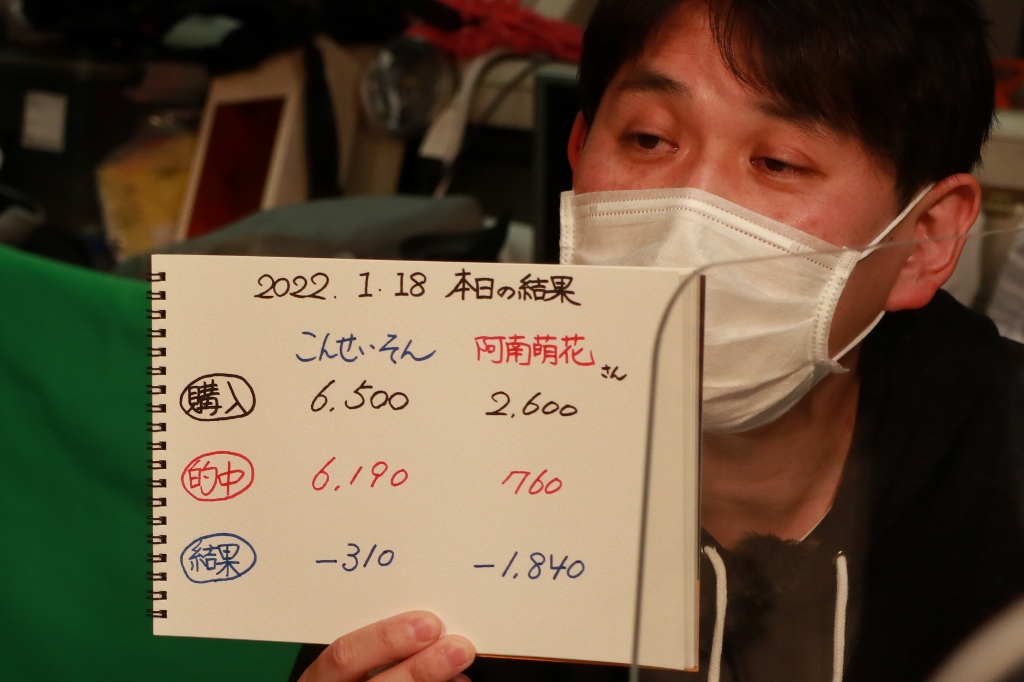 2022. 1. 18 本日の結果
こんせいそん 阿南萌花さん
購入 6.500 2.600
的中 6.190 760
結果 -310 -1.840